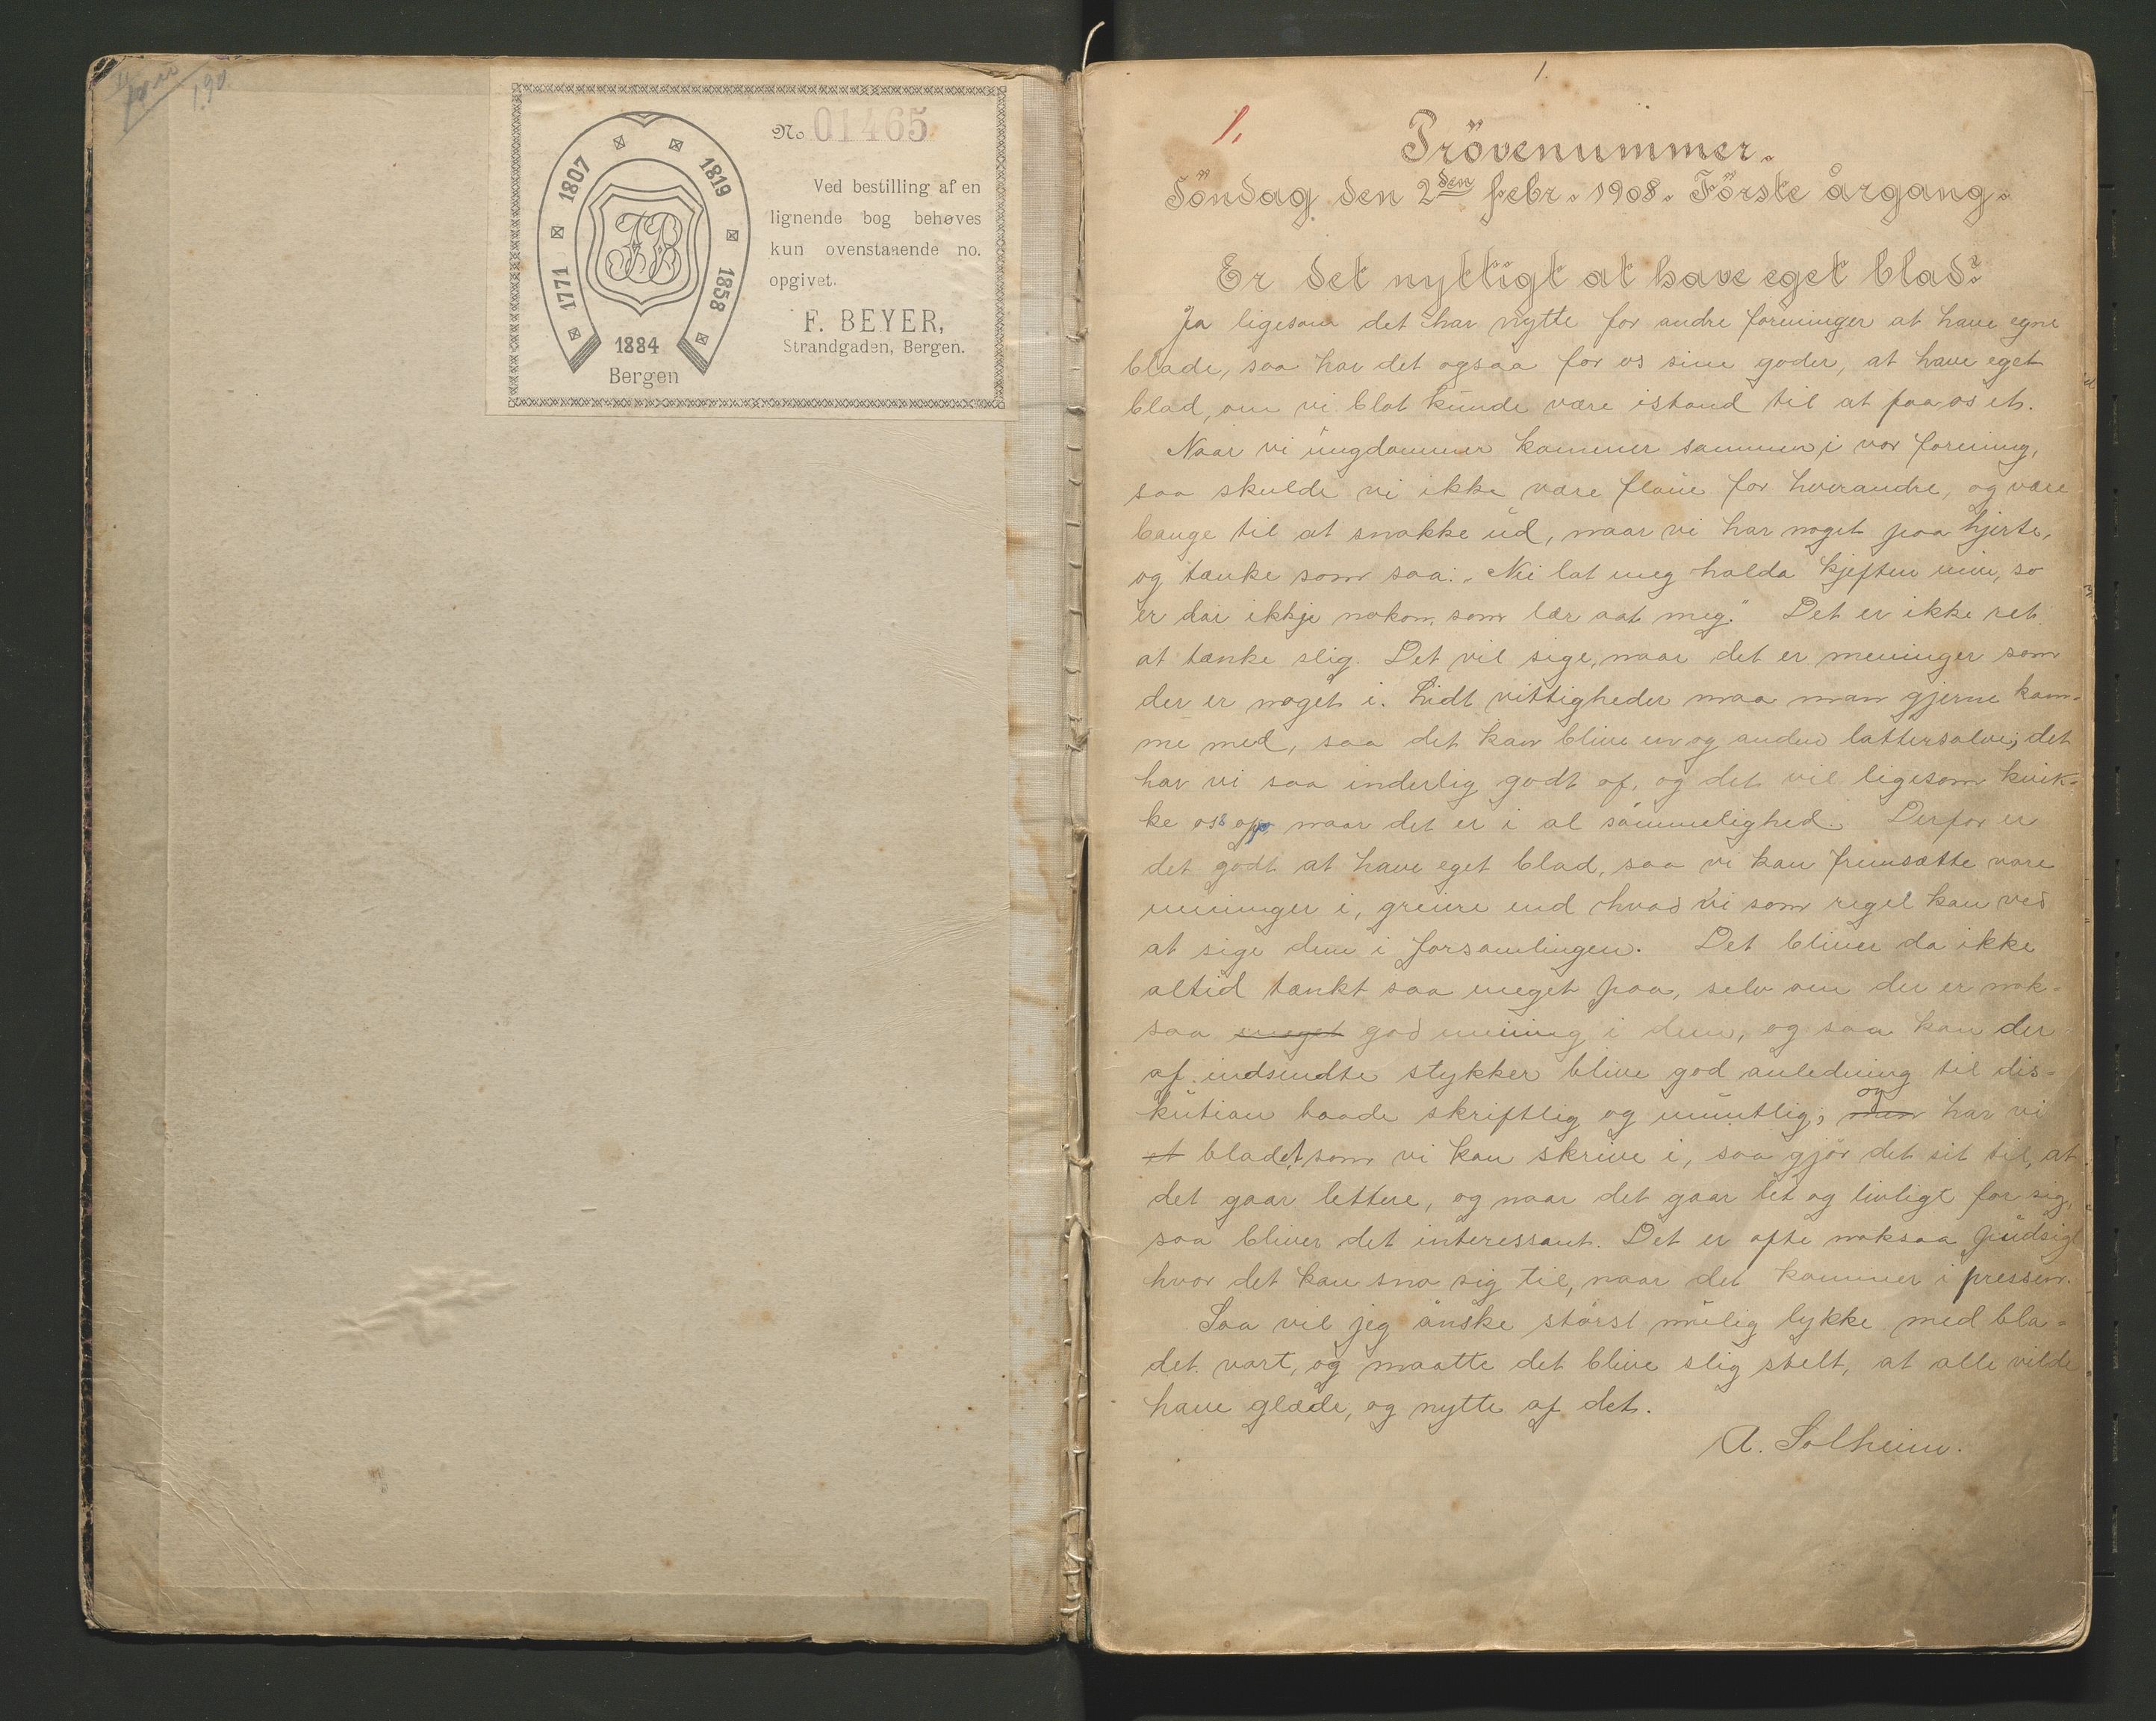 1,90
No. 01465
Ved bestilling af en
lignende bog behøves
kun ovenstaaende no.
opgivet.
F. BEYER,
Strandgaden, Bergen.
1771 1807 1819 1858
FB
1884
Bergen
1.
1.
Prövenummer.
Söndag den 2den febr. 1908. Förste årgang.
Er det nyttigt at have eget blad?
Ja ligesom det har nytte for andre foreninger at have egne
blade, saa har det ogsaa for os sine goder, at have eget
blad, om vi blot kunde være istand til at faa os et.
Naar vi ungdommer kommer sammen i vor forening,
saa skulde vi ikke være flaue for hverandre, og være
bange til at snakke ud, naar vi har noget paa hjerte,
og tænke som saa: „Nei lat meg halda kjeften min, so
er dar ikkje nokon som lær aat meg." Det er ikke ret
at tænke slig. Det vil sige, naar det er meninger som
der er noget i. Lidt vittigheder maa man gjerne kom-
me med, saa det kan blive en og anden lattersalve; det
har vi saa inderlig godt af, og det vil ligesom kvik-
ke oss opp naar det er i al sömmelighed. Derfor er
det godt at have eget blad, saa vi kan fremsætte vore
meninger i, greiere end hvad vi som regel kan ved
at sige dem i forsamlingen. Det bliver da ikke
altid tænkt saa meget paa, selv om der er nok-
saa meget god mening i dem, og saa kan der
af indsendte stykker blive god anledning til dis-
kution baade skriftlig og muntlig; man og har vi
et bladet som vi kan skrive i, saa gjör det sit til, at
det gaar lettere, og naar det gaar let og livligt for sig,
saa bliver det interessant. Det er ofte noksaa pudsigt
hvor det kan sno sig til, naar det kommer i pressen.
Saa vil jeg önske störst mulig lykke med bla-
det vort, og maatte det blive slig stelt, at alle vilde
have glæde, og nytte af det.
A. Solheim.